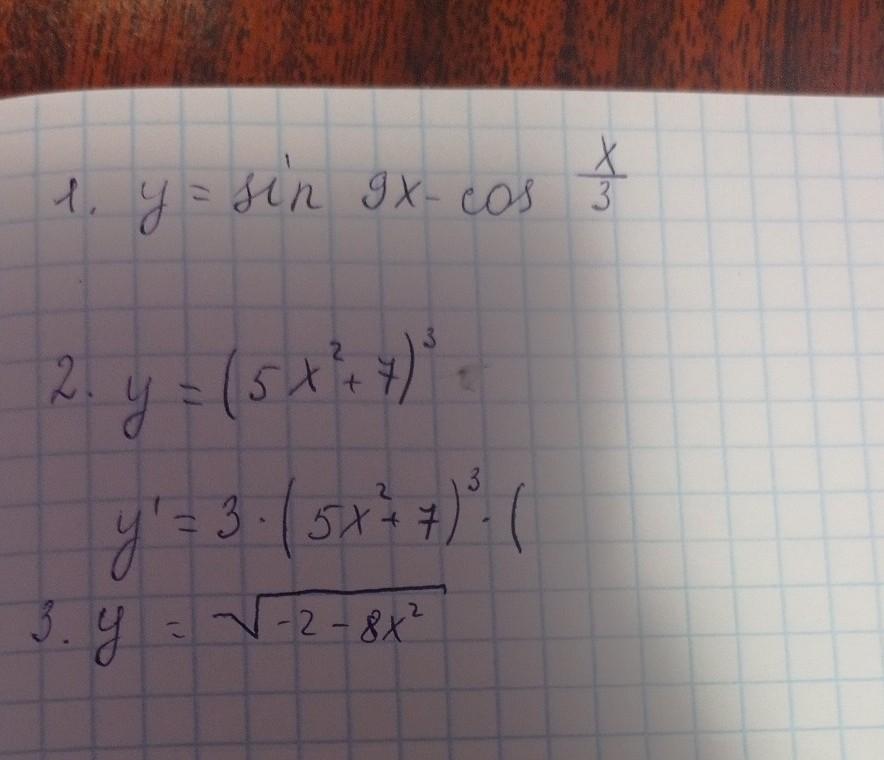 1. y = sin 9x - cos x/3
2. y = (5x² + 7)³
y' = 3 · (5x² + 7)³ · (
3. y = √(-2 - 8x²)